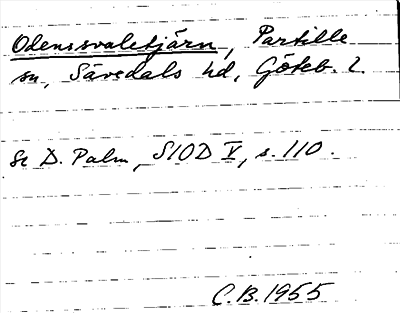 Odenssvaletjärn, Partille
sn, Sävedals hd, Göteb. l.
Se D. Palm, SIOD V, s. 110.
C.B. 1955